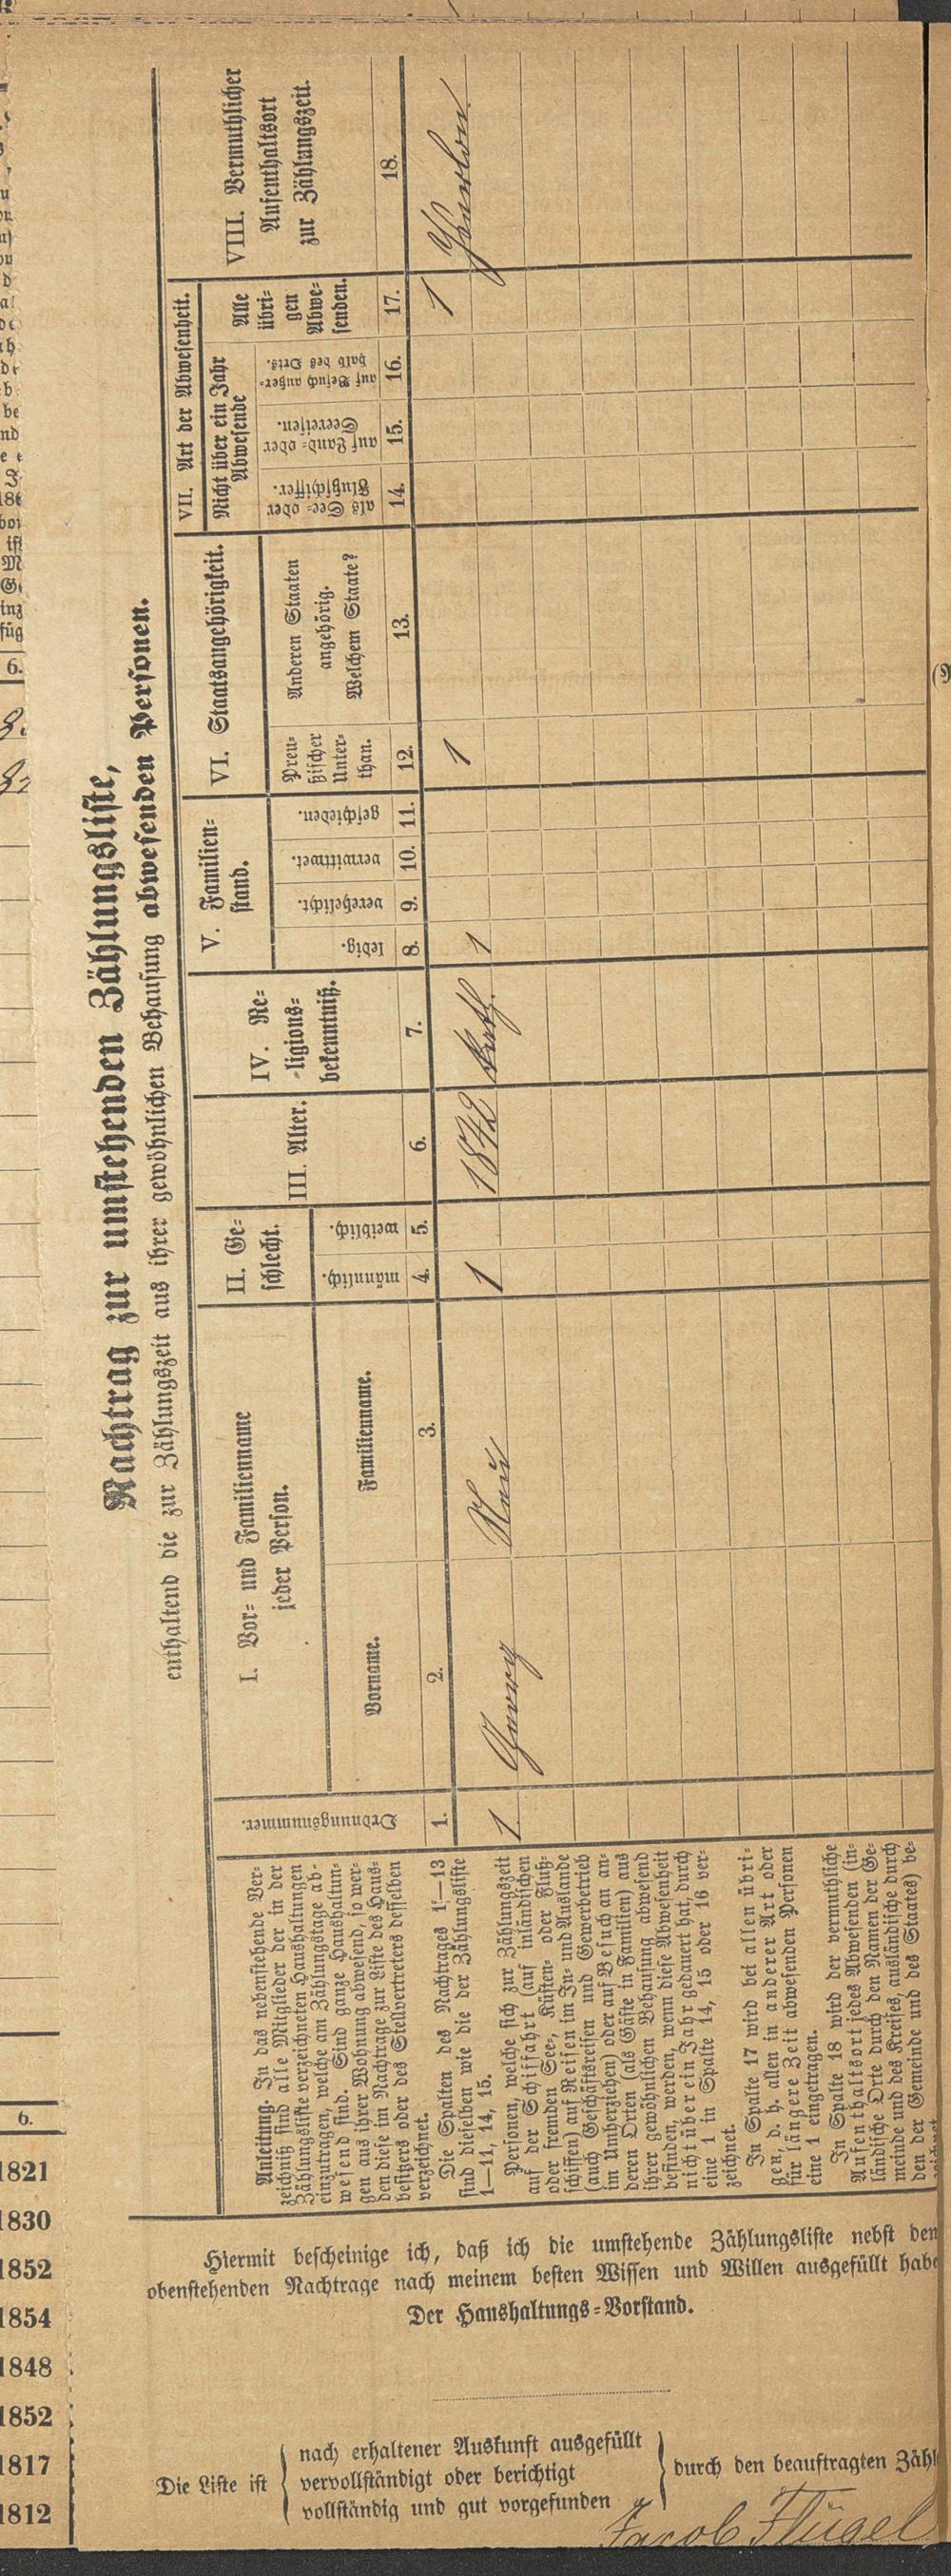 Nachtrag zur umstehenden Zählungsliste,
enthaltend die zur Zählungszeit aus ihrer gewöhnlichen Behausung abwesenden Personen.
Anleitung. In das nebenstehende Ver-
zeichniß sind alle Mitglieder der in der
Zählungsliste verzeichneten Haushaltungen
einzutragen, welche am Zählungstage ab-
wesend sind. Sind ganze Haushaltun-
gen aus ihrer Wohnung abwesend, so wer-
den diese im Nachtrage zur Liste des Haus-
besitzers oder des Stellvertreters desselben
verzeichnet.
Die Spalten des Nachtrages 1–13
sind dieselben wie die der Zählungsliste
1—11, 14, 15.
Personen, welche sich zur Zählungszeit
auf der Schiffahrt (auf inländischen
oder fremden See-, Küsten- oder Fluß-
schiffen) auf Reisen im In- und Auslande
(auch Geschäftsreisen und Gewerbetrieb
im Umherziehen) oder auf Besuch an an-
deren Orten (als Gäste in Familien) aus
ihrer gewöhnlichen Behausung abwesend
befinden, werden, wenn diese Abwesenheit
nicht über ein Jahr gedauert hat, durch
eine 1 in Spalte 14, 15 oder 16 ver-
zeichnet.
In Spalte 17 wird bei allen übri-
gen, d. h. allen in anderer Art oder
für längere Zeit abwesenden Personen
eine 1 eingetragen.
In Spalte 18 wird der vermuthliche
Aufenthaltsort jedes Abwesenden (in-
ländische Orte durch den Namen der Ge-
meinde und des Kreises, ausländische durch
den der Gemeinde und des Staates) be-
zeichnet.
Ordnungsnummer.
I. Vor- und Familienname
jeder Person.
Vorname.
Familienname.
II. Ge-
schlecht.
männlich.
weiblich.
III. Alter.
IV. Re-
ligions-
bekenntniß.
V. Familien-
stand.
ledig.
verehelicht.
verwittwet.
geschieden.
VI. Staatsangehörigkeit.
Preu-
ßischer
Unter-
than.
Anderen Staaten
angehörig.
Welchem Staate?
VII. Art der Abwesenheit.
Nicht über ein Jahr
Abwesende
als See- oder
Flußschiffer.
auf Land- oder
Seereisen.
auf Besuch außer-
halb des Orts.
Alle
übri-
gen
Abwe-
senden.
VIII. Vermuthlicher
Aufenthaltsort
zur Zählungszeit.
1. 2. 3. 4. 5. 6. 7. 8. 9. 10. 11. 12. 13. 14. 15. 16. 17. 18.
1 Georg 1 1842 Kath. 1 1 1
Hiermit bescheinige ich, daß ich die umstehende Zählungsliste nebst dem
obenstehenden Nachtrage nach meinem besten Wissen und Willen ausgefüllt habe
Der Haushaltungs-Vorstand.
Die Liste ist
nach erhaltener Auskunft ausgefüllt
vervollständigt oder berichtigt
vollständig und gut vorgefunden
durch den beauftragten Zähl
Jacob Flügel
6.
6.
1821
1830
1852
1854
1848
1852
1817
1812